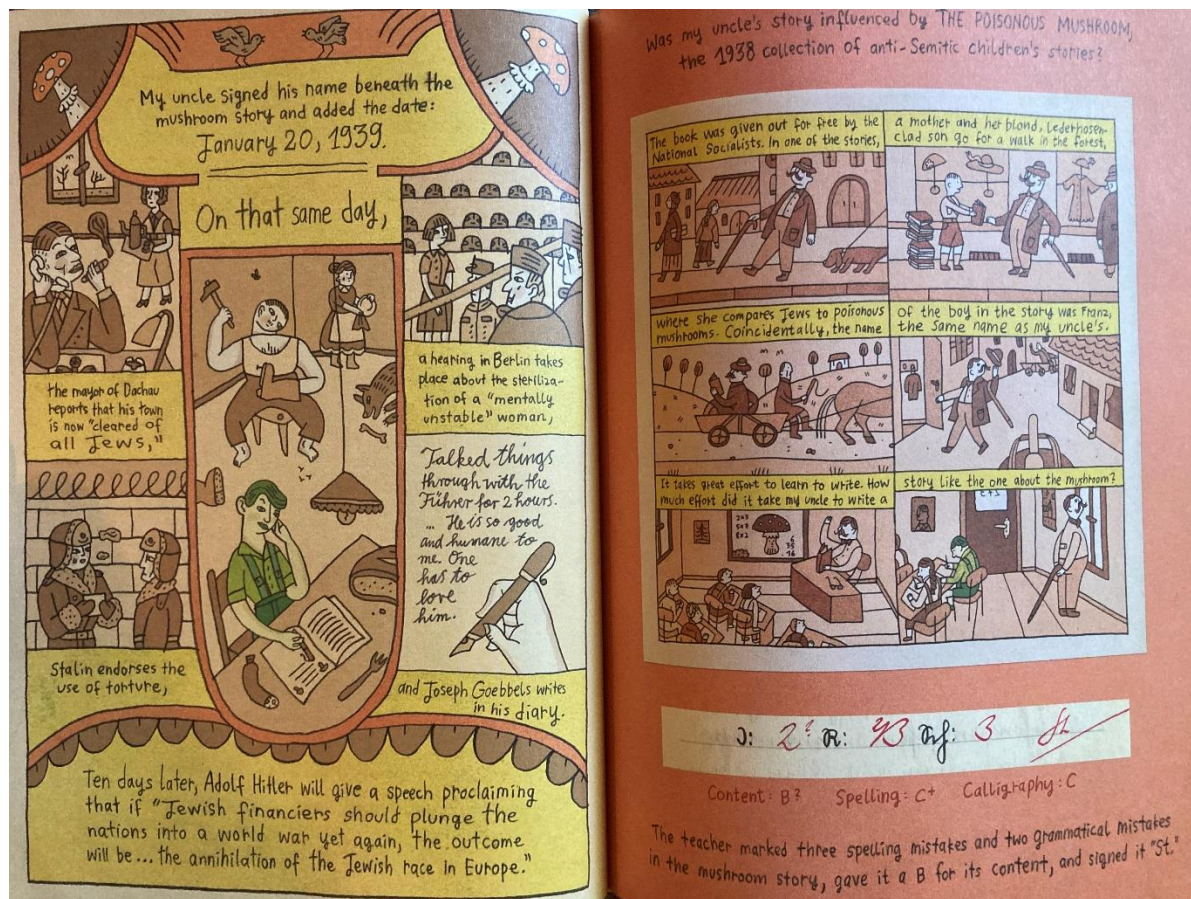 My uncle signed his name beneath the
mushroom story and added the date:
January 20, 1939.
On that same day,
the mayor of Dachau
reports that his town
is now "cleared of
all Jews,"
a hearing in Berlin takes
place about the steriliza-
tion of a "mentally
unstable" woman,
Stalin endorses the
use of torture,
Talked things
through with the
Führer for 2 hours.
... He is so good
and humane to
me. One
has to
love
him.
and Joseph Goebbels writes
in his diary.
Ten days later, Adolf Hitler will give a speech proclaiming
that if "Jewish financiers should plunge the
nations into a world war yet again, the outcome
will be... the annihilation of the Jewish race in Europe."
Was my uncle's story influenced by THE POISONOUS MUSHROOM,
the 1938 collection of anti-Semitic children's stories?
The book was given out for free by the
National Socialists. In one of the stories,
a mother and her blond, Lederhosen-
clad son go for a walk in the forest,
where she compares Jews to poisonous
mushrooms. Coincidentally, the name
of the boy in the story was Franz,
the same name as my uncle's.
It takes great effort to learn to write. How
much effort did it take my uncle to write a
story like the one about the mushroom?
J: 2? R: 3 Sch: 3 St
Content: B? Spelling: C+ Calligraphy: C
The teacher marked three spelling mistakes and two grammatical mistakes
in the mushroom story, gave it a B for its content, and signed it "St."